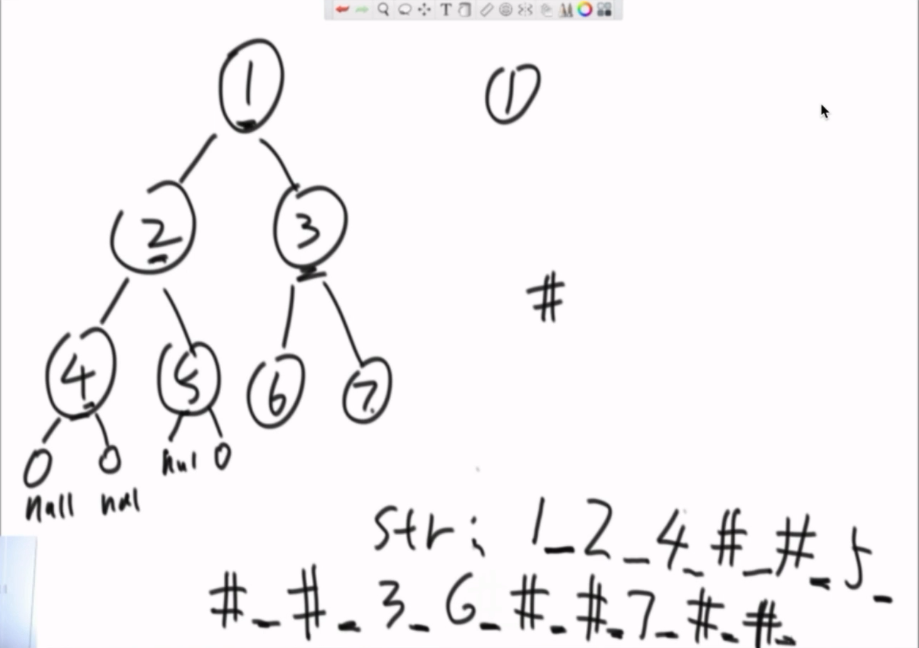 1
1
2
3
#
4
5
6
7
null
nul
nul
str: 1_2_4_#_#_5_
#_#_3_6_#_#_7_#_#_